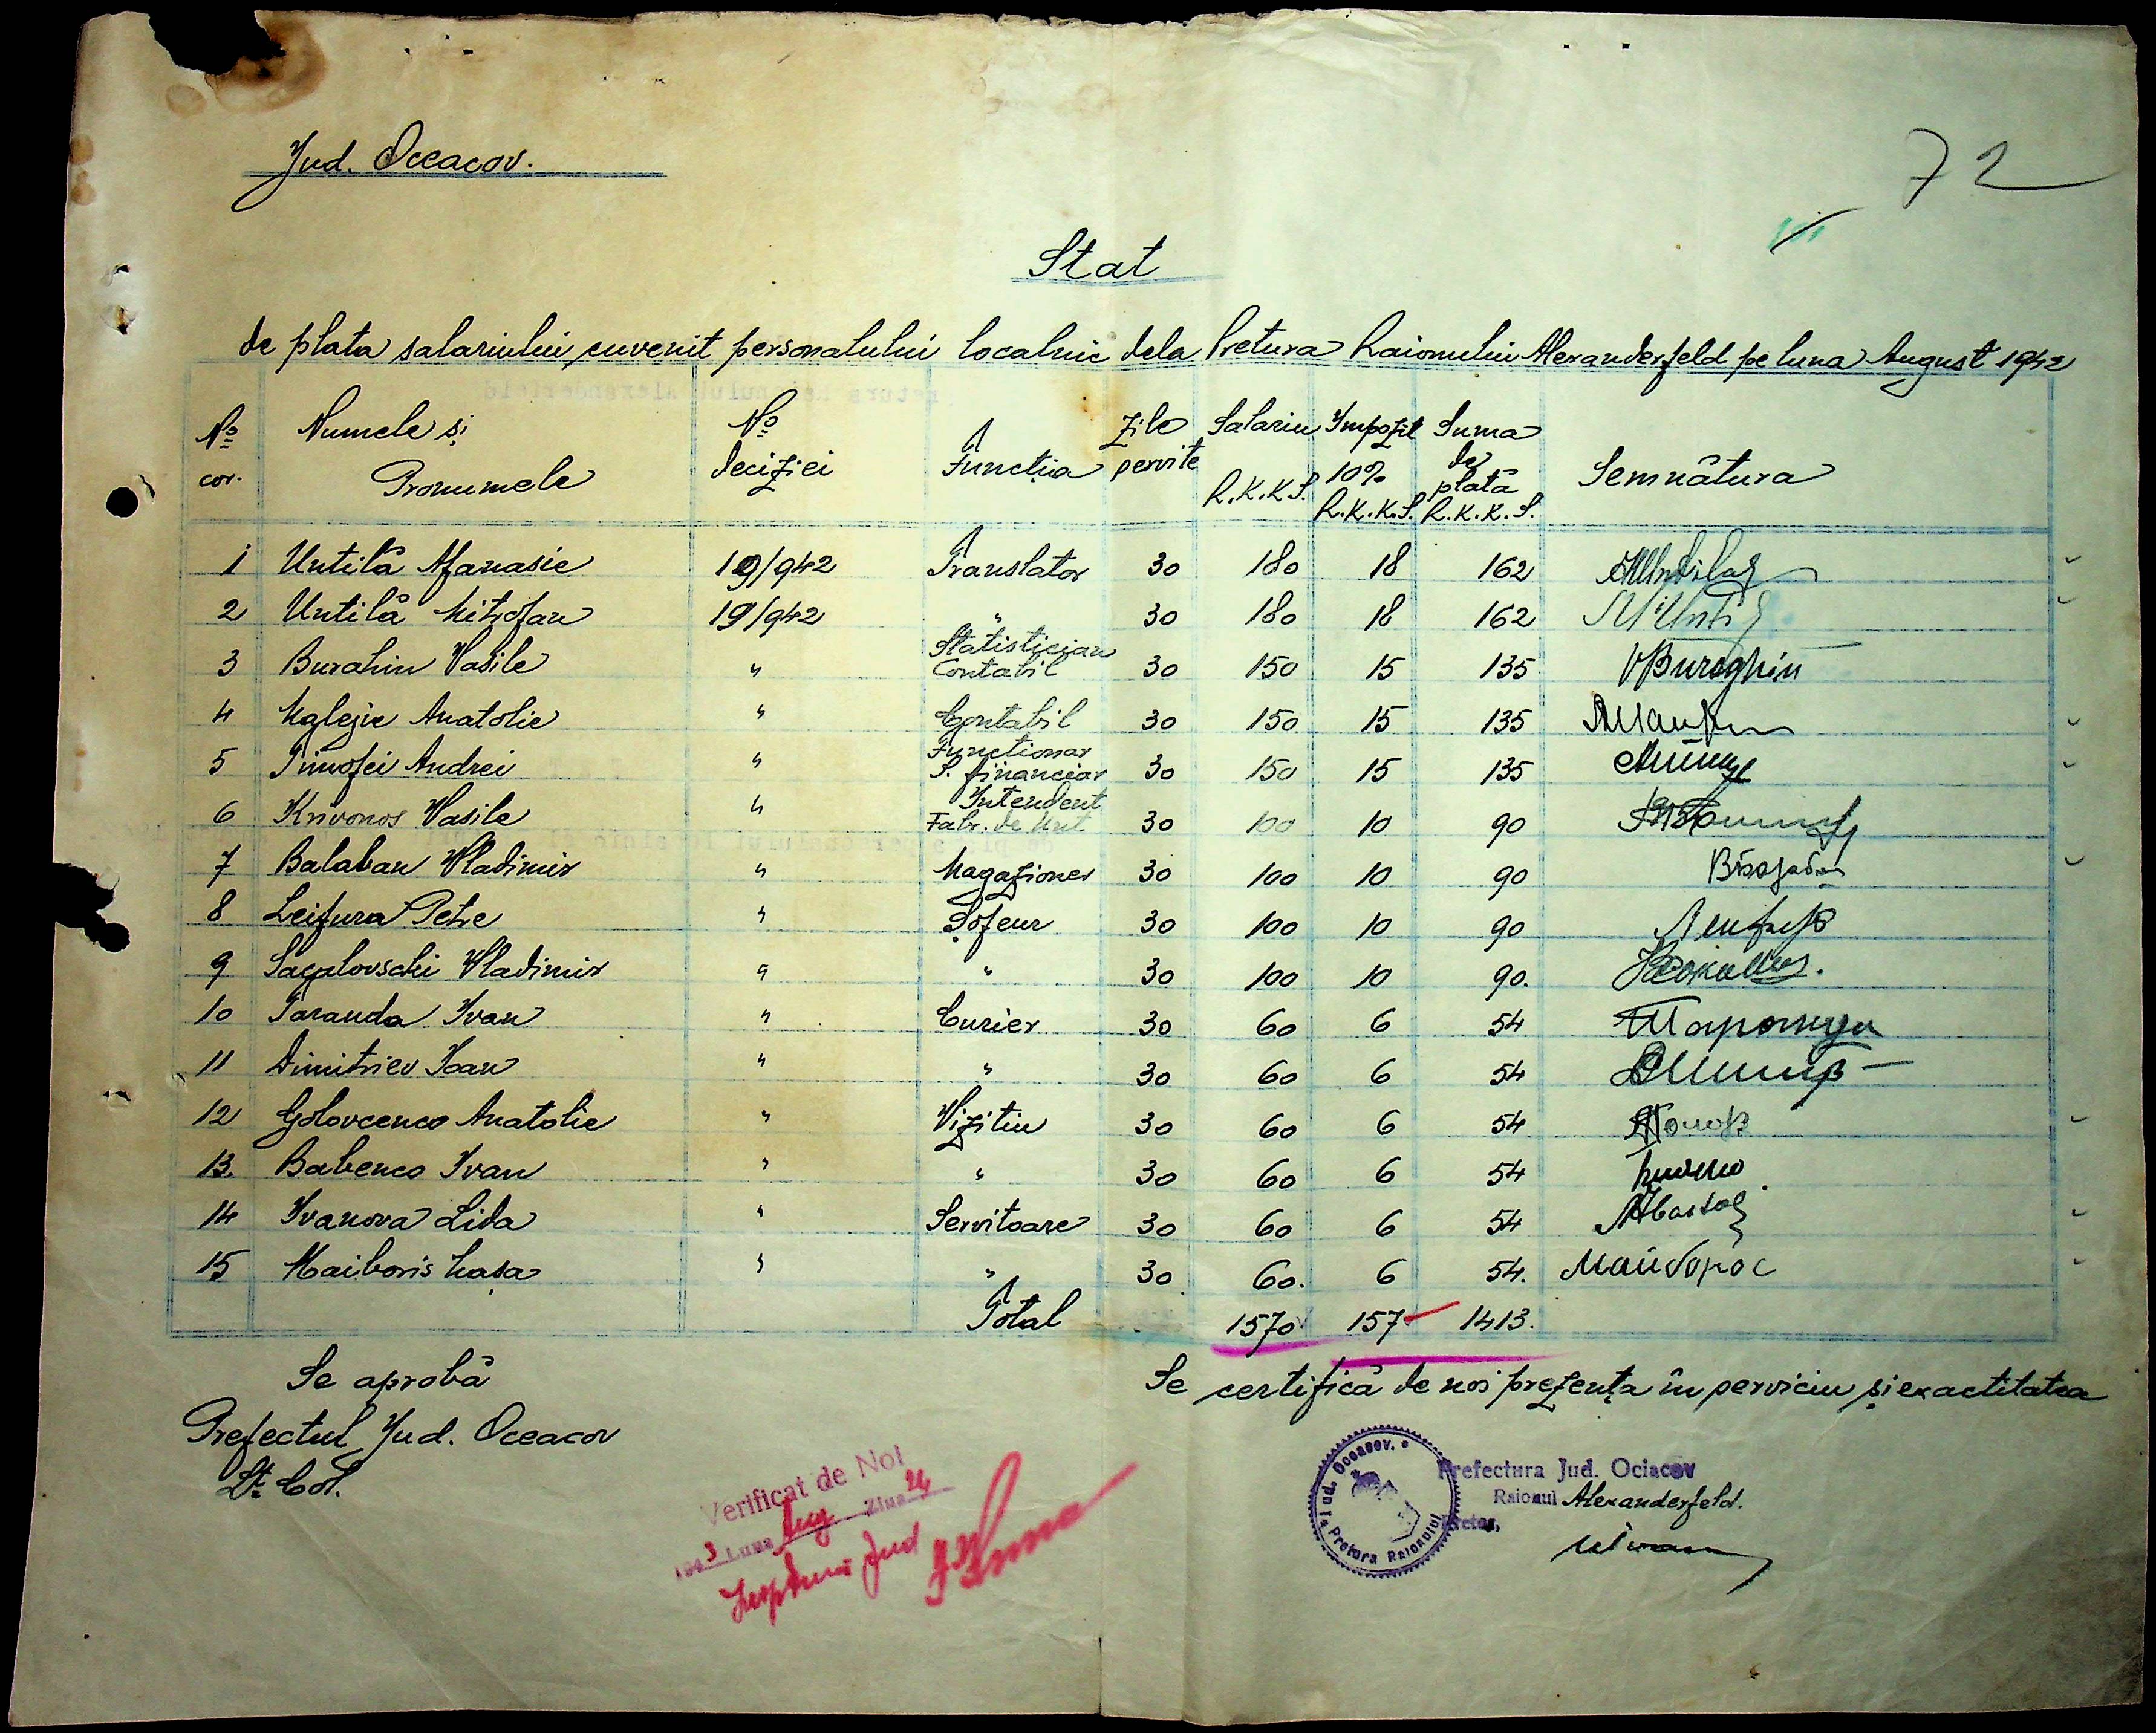 72
Jud. Oceacov.
Stat
de plata salariului cuvenit personalului localnic dela Pretura Raionului Alexanderfeld pe luna August 1942
No cor. Numele si Pronumele No deciziei Funcția zile servite Salariu R.K.K.S. Impozit 10% R.K.K.S. Suma de plată R.K.K.S. Semnătura
1 Untilă Afanasie 19/942 Translator 30 180 18 162
2 Untilă Mitrofan 19/942 " 30 180 18 162
3 Burahin Vasile " Statistician Contabil 30 150 15 135 VBuraghin
4 Anatolie " Contabil 30 150 15 135
5 Timofei Andrei " Functionar S. financiar 30 150 15 135
6 Krivonos Vasile " Intendent Fabr. de Unt 30 100 10 90
7 Balaban Vladimir " Magazioner 30 100 10 90
8 Leifura Petre " Șofeur 30 100 10 90
9 Sagalovschi Vladimir " " 30 100 10 90.
10 Taranda Ivan " Curier 30 60 6 54
11 Dimitriev Ioan " " 30 60 6 54
12 Golovcenco Anatolie " Vizitiu 30 60 6 54
13. Babenco Ivan " " 30 60 6 54
14 Ivanova Lida " Servitoare 30 60 6 54
15 Maiboris " " 30 60. 6 54. Майборос
Total 1570 157 1413.
Se aprobă
Prefectul Jud. Oceacov
Lt. Col.
Se certifică de noi prezența în serviciu și exactitatea
Verificat de Noi
Luna Aug Ziua 24
Jud
Prefectura Jud. Ociacov
Raionul Alexanderfeld.
Pretor,
Jud. Oceacov. Pretura Raionului